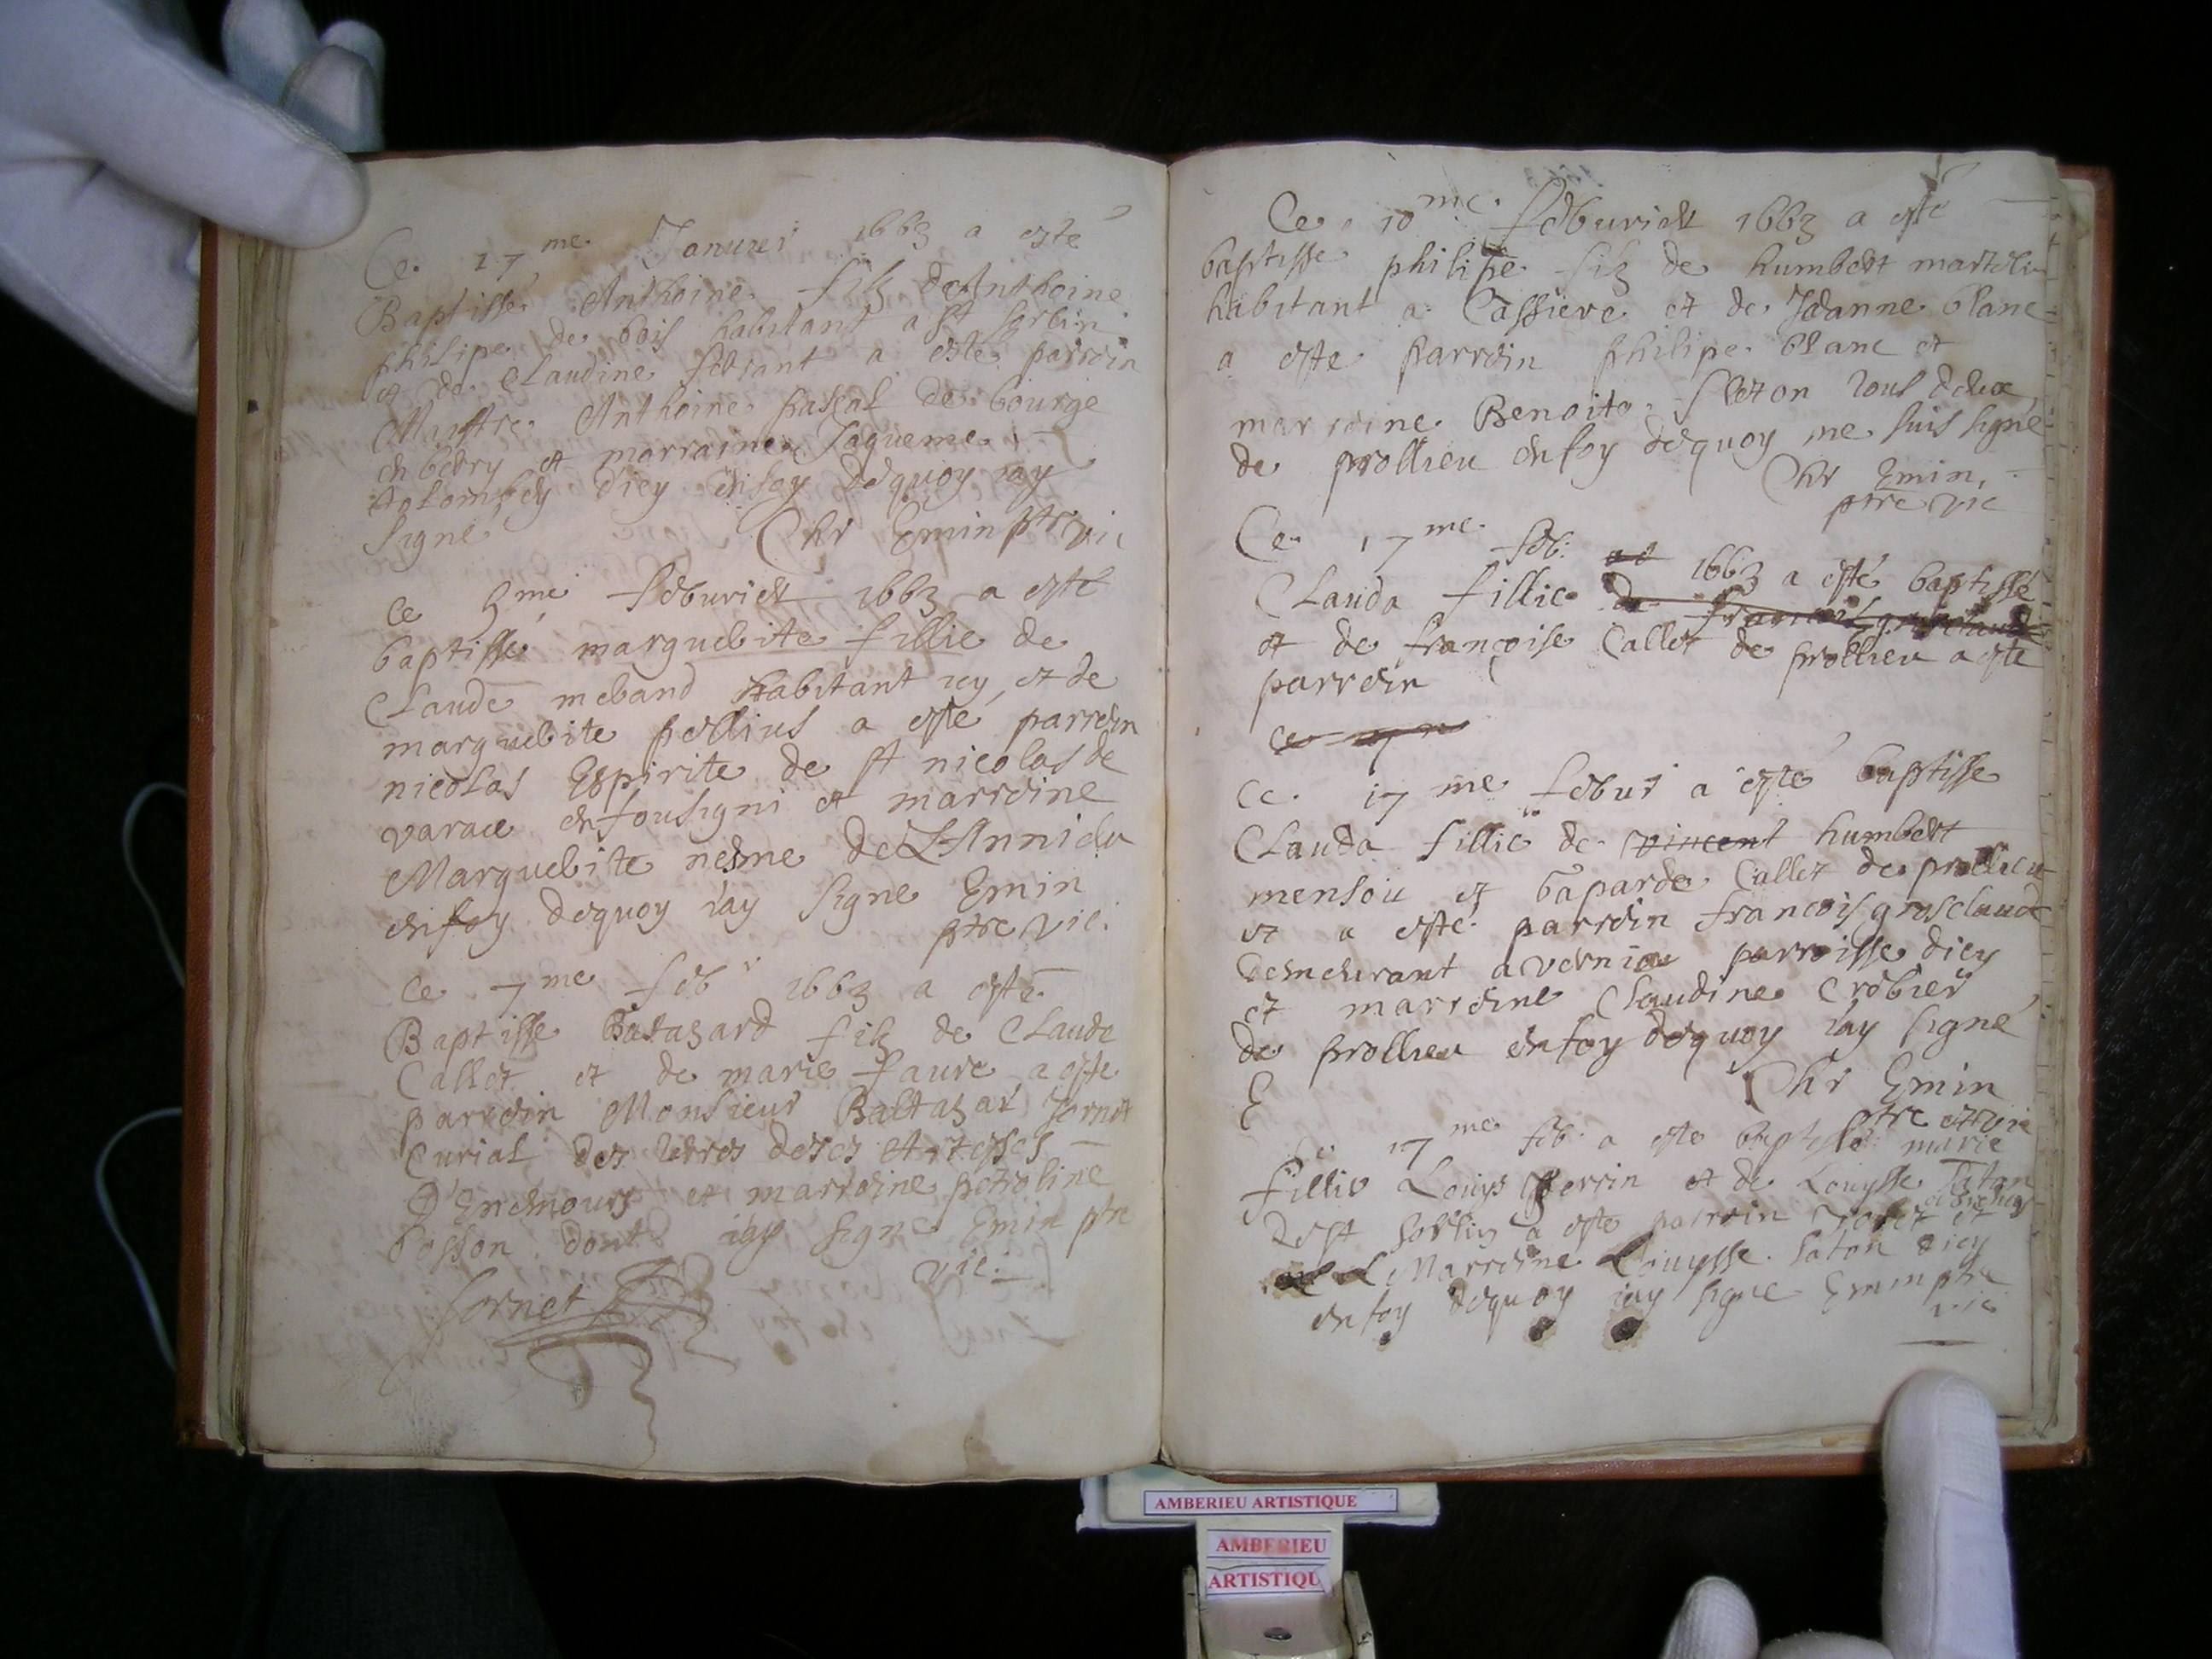 Ce 17me Januier 1663 a esté
Baptissé Anthoine filz de Anthoine
philipe de bois habitant a St Sorlin
et de Claudine ferrant a esté parrein
Maistre Anthoine pascal de bourge
en berry et marraine Jaqueme
diey en foy dequoy iay
signé Chr Emin ptre vic
ce 5me feburier 1663 a esté
baptissé marguerite fillie de
Claude habitant icy et de
marguerite a esté parrein
nicolas Espirite de st nicolas de
en fousigni et marreine
Marguerite nesme de
en foy dequoy iay signe Emin
ptre vic.
ce 7me febr 1663 a esté
Baptisse Batazard filz de Claude
Callet et de marie faure a esté
parrein Monsieur Baltazar Jornet
Curial des terres de ses Altesses
D'Enemours et marreine petroline
bosson dont iay signe Emin ptre
vic.
Jornet
Ce 10me feburier 1663 a esté
baptisse philipe filz de humbert martelin
habitant a Cassiere et de Jeanne blanc
a esté parrein philipe blanc et
marreine Benoite tous deux
de prollieu en foy dequoy me suis signé
Chr Emin,
ptre vic
Ce 17me feb: 1663 a esté baptissé
Clauda fillie de francois grosclaude
et de francoise Callet de prollieu a esté
parrein
ce 17 me
ce 17 me febur a esté baptisse
Clauda fillie de vincent humbert
mensou et Callet de prollieu
et a esté parrein francois grosclaude
demeurant a parroisse diey
et marreine Claudine Crobier
de prollieu en foy dequoy iay signé
E Chr Emin
ptre et vic
17me feb. a esté baptissé marie
fillie Louys perrin et de Louysse Taton
de St Sorlin a esté parrein et
Marreine Louysse Taton diey
en foy dequoy iay signe Emin ptre
vic
AMBERIEU ARTISTIQUE
AMBERIEU
ARTISTIQU